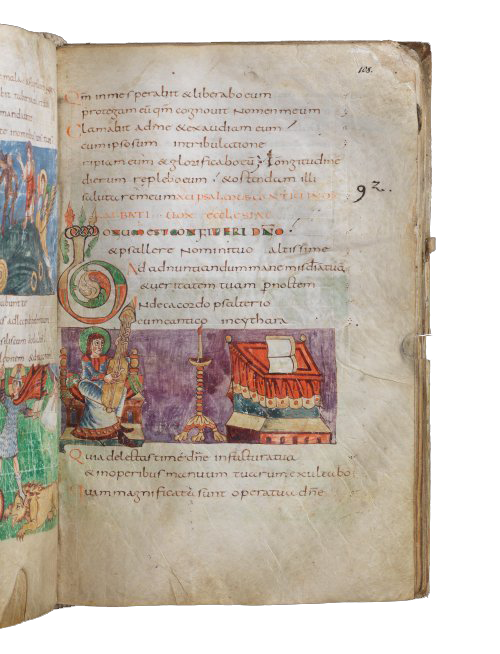 108.
Qm̄ inme sperabit & liberabo eum
protegam eū qm̄ cognouit nomen meum
Clamabit adme & exaudiam eum
cum ipso sum intribulatione
ripiam eum & glorificabo eū Longitudine
dierum repleboeum & ostendam illi
salutare meum XCI PSALMUS CANTICI IN DIE
SABBATI
92.
BONUM EST CONFITERI DÑO
& psallere nomini tuo altissime
Ad adnuntiandum mane misc̄diā tuā
& ueritatem tuam p noctem
In decacordo psalterio
cum cantico in cythara
Quia delectasti me dn̄e in factura tua
& in operibus manuum tuarum exultabo
Quam magnificata sunt opera tua dn̄e